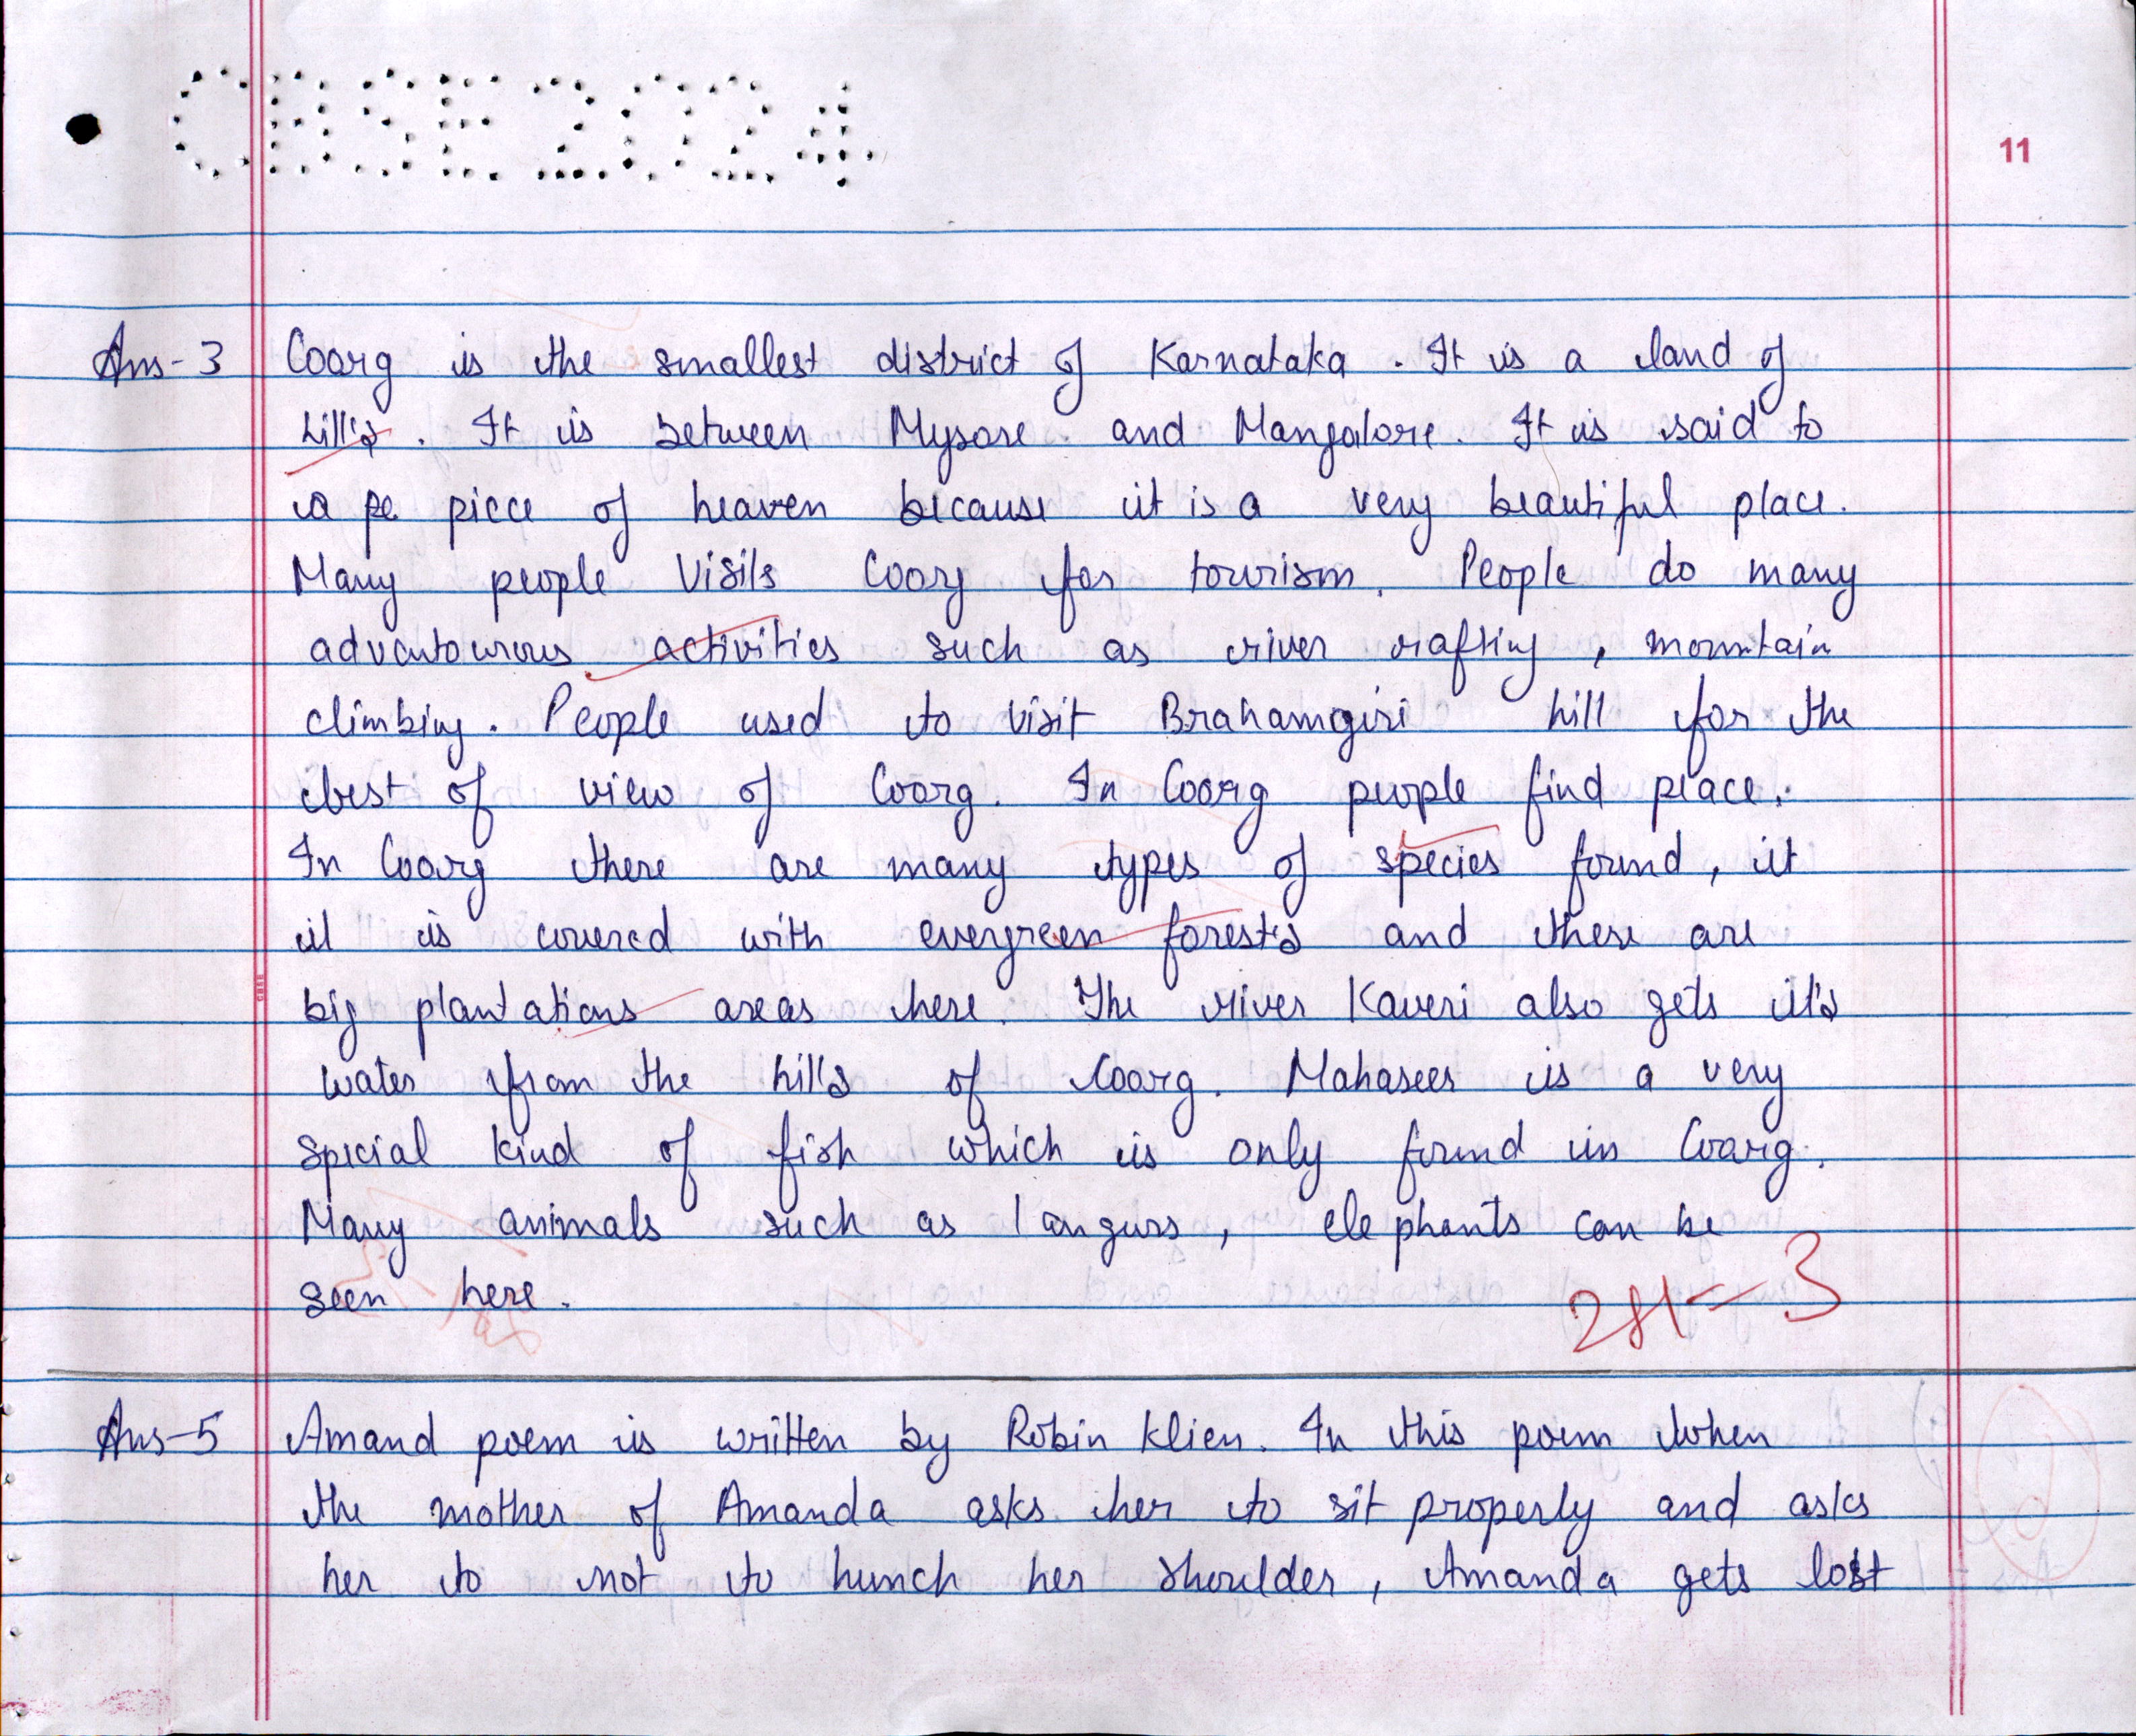 CBSE 2024
11
Ans-3 Coorg is the smallest district of Karnataka. It is a land of
hill's. It is between Mysore and Mangalore. It is said to
a pe piece of heaven because it is a very beautiful place.
Many people visits Coorg for tourism. People do many
advantourous activities such as river rafting, mountain
climbing. People used to visit Brahamgiri hill for the
best of view of Coorg. In Coorg people find peace.
In Coorg there are many types of species found, it
it is covered with evergreen forests and there are
big plantations areas here. The river Kaveri also gets it's
water from the hills of Coorg. Mahaseer is a very
special kind of fish which is only found in Coorg.
Many animals such as langurs, elephants can be
seen here.
2+1=3
Ans-5 Amand poem is written by Robin Klien. In this poem when
the mother of Amanda asks her to sit properly and asks
her to not to hunch her shoulder, Amanda gets lost